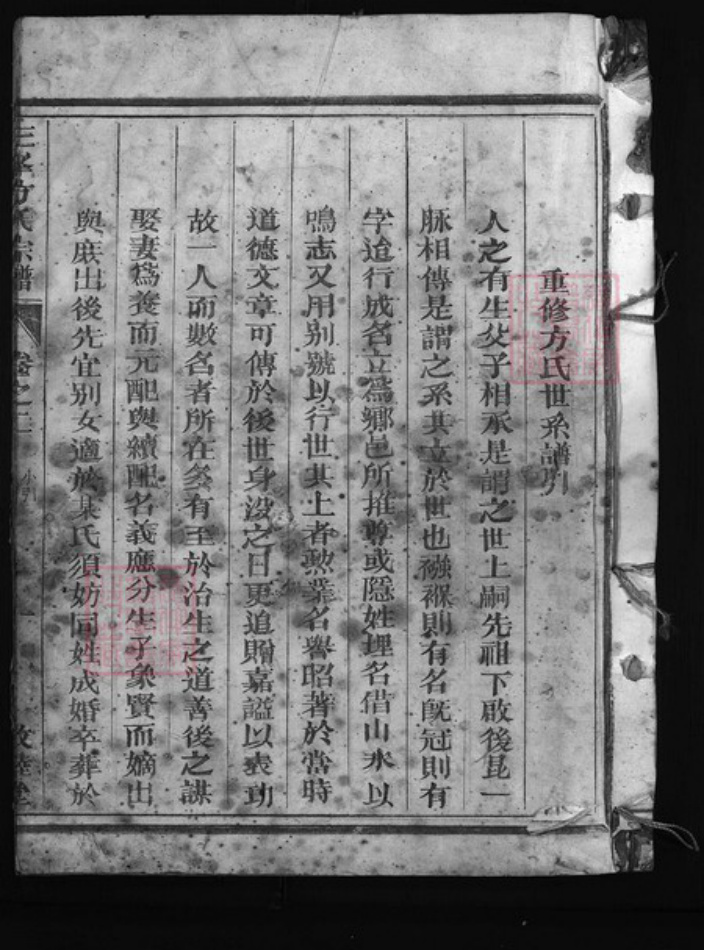 重修方氏世系譜引
人之有生父子相承是謂之世上嗣先祖下啟後昆一
脉相傳是謂之系其立於世也襁褓則有名旣冠則有
字迨行成名立爲鄉邑所推尊或隱姓埋名借山水以
鳴志又用别號以行世其上者勲業名譽昭著於當時
道德文章可傳於後世身没之日更追贈嘉謚以表功
故一人而數名者所在多有至於治生之道善後之謀
娶妻爲養而元配與續配名義應分生子象賢而嫡出
與庶出後先宜别女適於某氏須妨同姓成婚卒葬於
方氏宗譜 卷之二 小引 一